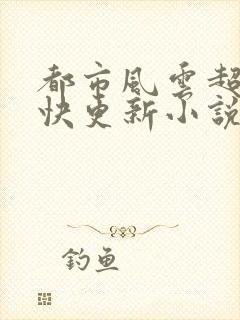 都市風雲超
快更新小說
釣魚